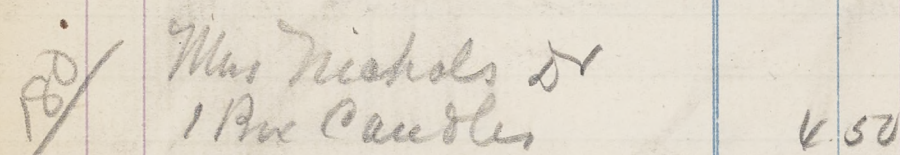 Mrs Nichols Dr
1 Box Candles 4 50